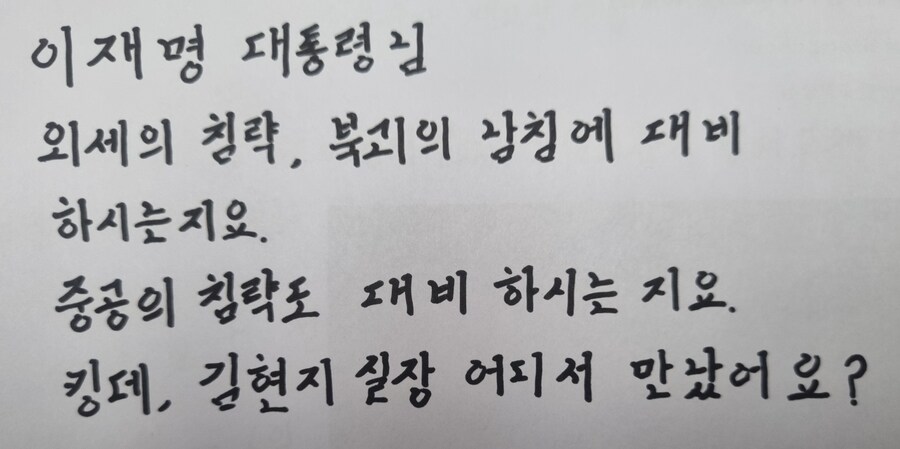 이재명 대통령님
외세의 침략, 북괴의 남침에 대비
하시는지요.
중공의 침략도 대비 하시는 지요.
킹데, 김현지 실장 어디서 만났어요?